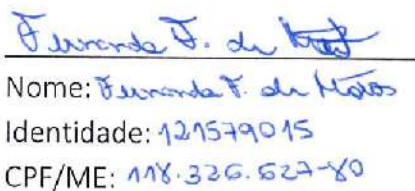 Fernanda F. de
Nome: Fernanda F. de Matos
Identidade: 121579015
CPF/ME: 118.326.627-80